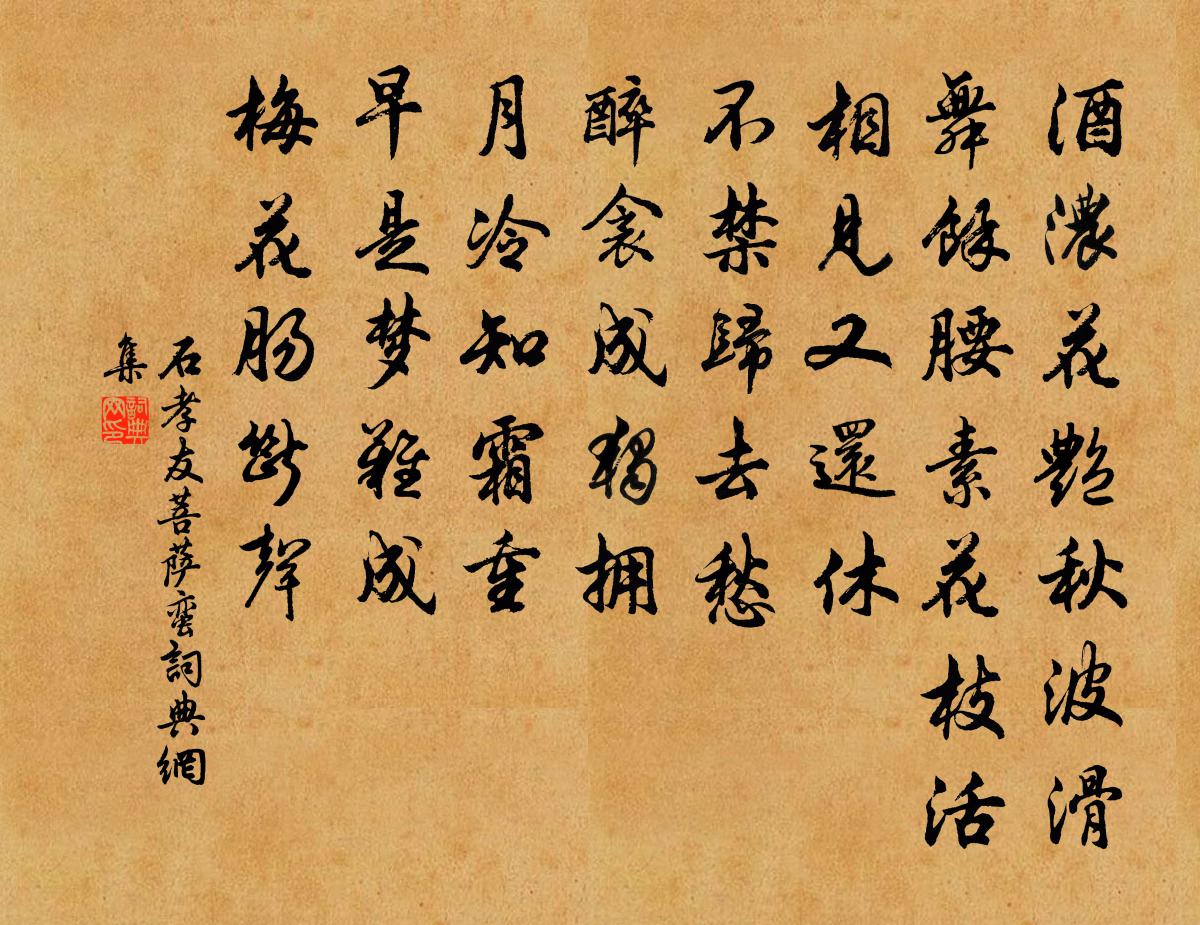 酒濃花艷秋波滑
舞餘腰素花枝活
相見又還休
不禁歸去愁
醉衾成獨拥
月冷知霜重
早是梦難成
梅花肠斷聲
石孝友菩萨蛮詞典網
集
詞典
网印